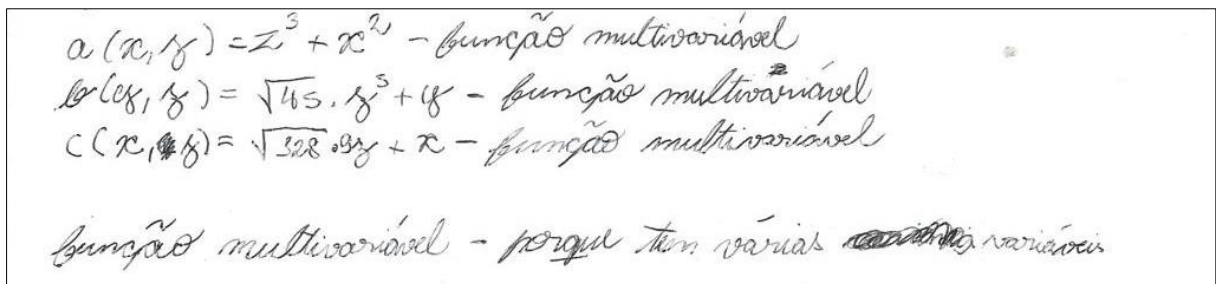 a(x,z) = z³ + x² - função multivariável
b(y,z) = √45 . z⁵ + y - função multivariável
c(x,z) = √328 . 9z + x - função multivariável
função multivariável - porque tem várias variáveis